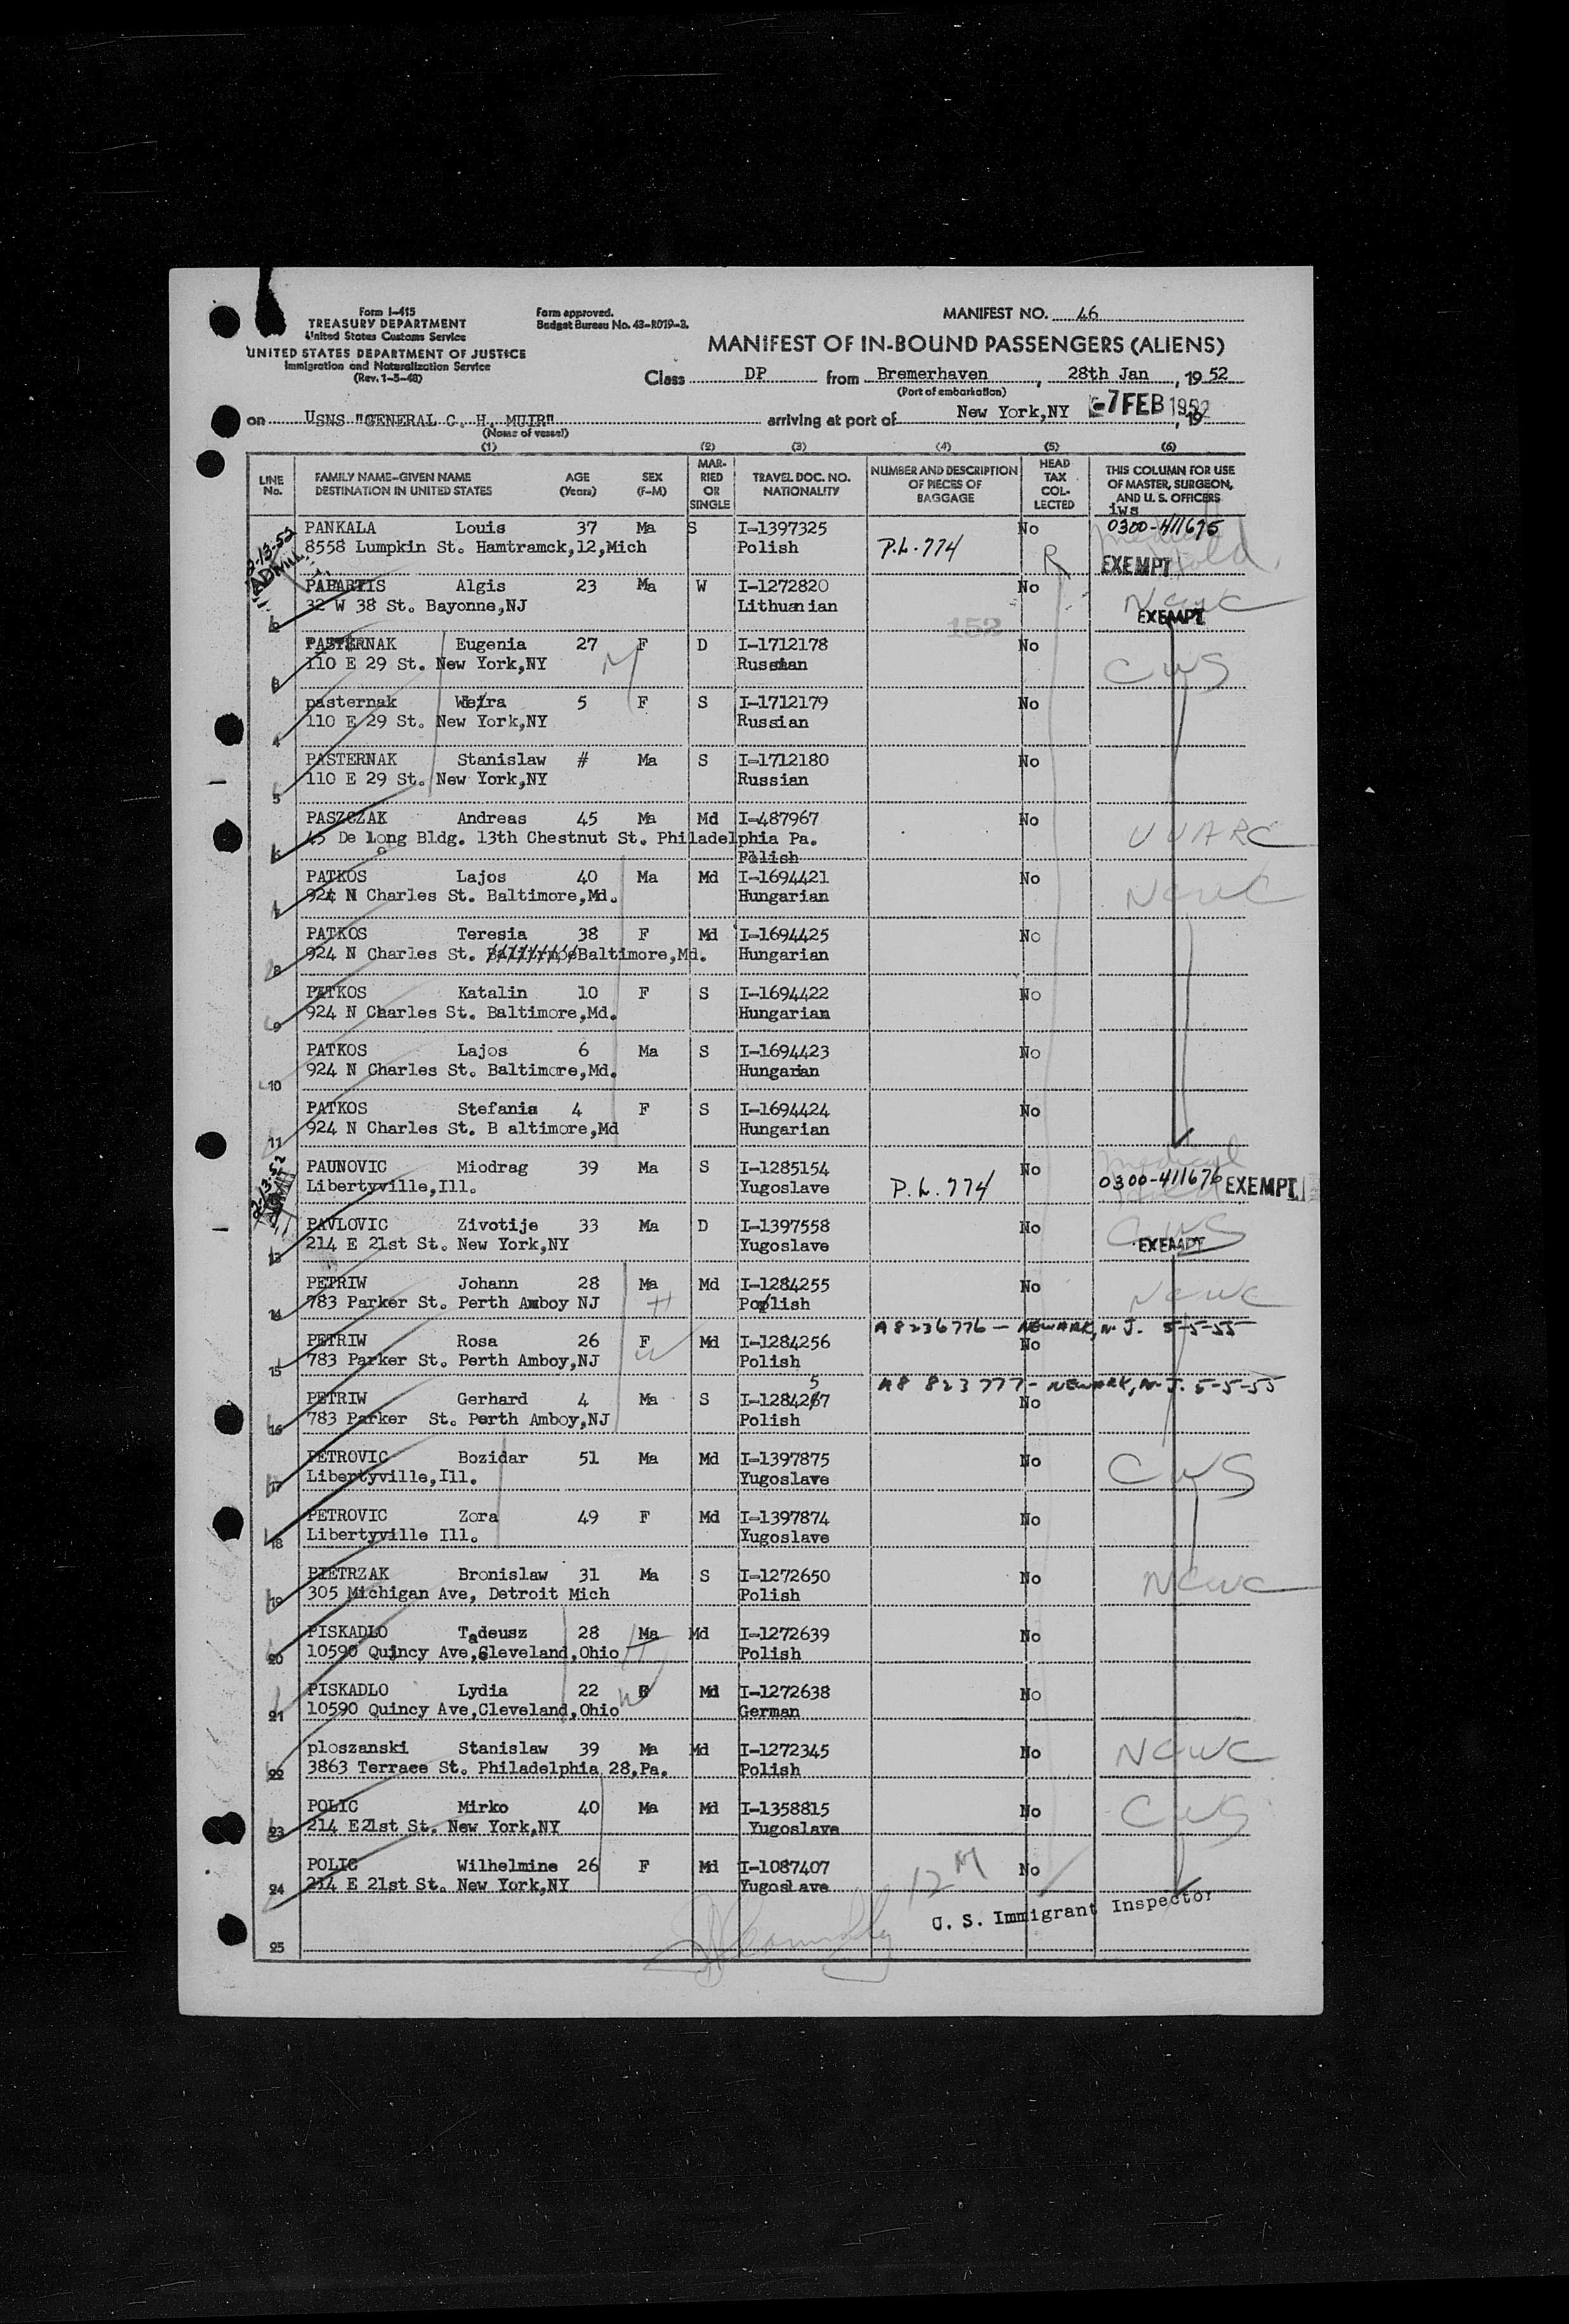 Form I-415
TREASURY DEPARTMENT
United States Customs Service
UNITED STATES DEPARTMENT OF JUSTICE
Immigration and Naturalization Service
(Rev. 1-5-48)
Form approved.
Budget Bureau No. 43-R019-3.
MANIFEST NO. 46
MANIFEST OF IN-BOUND PASSENGERS (ALIENS)
Class DP from Bremerhaven, 28th Jan, 1952
(Port of embarkation)
on USNS "GENERAL C. H. MUIR" arriving at port of New York,NY -7 FEB 1952, 19
(Name of vessel)
(1) (2) (3) (4) (5) (6)
LINE No. FAMILY NAME-GIVEN NAME DESTINATION IN UNITED STATES AGE (Years) SEX (F-M) MARRIED OR SINGLE TRAVEL DOC. NO. NATIONALITY NUMBER AND DESCRIPTION OF PIECES OF BAGGAGE HEAD TAX COLLECTED THIS COLUMN FOR USE OF MASTER, SURGEON, AND U. S. OFFICERS
iws
PANKALA Louis 37 Ma S I-1397325 No 0300-411675
8558 Lumpkin St. Hamtramck,12,Mich Polish P.L.774 R EXEMPT Medical Hold
2-13-52
PAPARTIS Algis 23 Ma W I-1272820 No NCWC
2 32 W 38 St. Bayonne,NJ Lithuanian EXEMPT
152
PASTERNAK Eugenia 27 F D I-1712178 No
3 110 E 29 St. New York,NY M Russian CWS
pasternak Wera 5 F S I-1712179 No
4 110 E 29 St. New York,NY Russian
PASTERNAK Stanislaw # Ma S I-1712180 No
5 110 E 29 St. New York,NY Russian
PASZCZAK Andreas 45 Ma Md I-487967 No
6 45 De Long Bldg. 13th Chestnut St. Philadelphia Pa. UUARC
Polish
PATKOS Lajos 40 Ma Md I-1694421 No
7 924 N Charles St. Baltimore,Md. Hungarian NCWC
PATKOS Teresia 38 F Md I-1694425 No
8 924 N Charles St. Baltimore,Md. Hungarian
PATKOS Katalin 10 F S I-1694422 No
9 924 N Charles St. Baltimore,Md. Hungarian
PATKOS Lajos 6 Ma S I-1694423 No
10 924 N Charles St. Baltimore,Md. Hungarian
PATKOS Stefania 4 F S I-1694424 No
11 924 N Charles St. B altimore,Md Hungarian
PAUNOVIC Miodrag 39 Ma S I-1285154 No Medical Hold
Libertyville,Ill. Yugoslave P.L.774 0300-411676 EXEMPT
2-13-52
PAVLOVIC Zivotije 33 Ma D I-1397558 No CWS
13 214 E 21st St. New York,NY Yugoslave EXEMPT
PETRIW Johann 28 Ma Md I-1284255 No
14 783 Parker St. Perth Amboy NJ H Polish NCWC
A8236776 - NEWARK, N. J. 5-5-55
PETRIW Rosa 26 F Md I-1284256 No
15 783 Parker St. Perth Amboy,NJ W Polish
A8 823 777 - NEWARK, N. J. 5-5-55
PETRIW Gerhard 4 Ma S I-1284257 No
16 783 Parker St. Perth Amboy,NJ Polish
PETROVIC Bozidar 51 Ma Md I-1397875 No
17 Libertyville,Ill. Yugoslave CWS
PETROVIC Zora 49 F Md I-1397874 No
18 Libertyville Ill. Yugoslave
PIETRZAK Bronislaw 31 Ma S I-1272650 No
19 305 Michigan Ave, Detroit Mich Polish NCWC
PISKADLO Tadeusz 28 Ma Md I-1272639 No
20 10590 Quincy Ave,Cleveland,Ohio H Polish
PISKADLO Lydia 22 F Md I-1272638 No
21 10590 Quincy Ave,Cleveland,Ohio W German
ploszanski Stanislaw 39 Ma Md I-1272345 No
22 3863 Terrace St. Philadelphia 28.Pa. Polish NCWC
POLIC Mirko 40 Ma Md I-1358815 No
23 214 E21st St. New York,NY Yugoslave CWS
POLIC Wilhelmine 26 F Md I-1087407 No
24 214 E 21st St. New York,NY Yugoslave 12 M
U. S. Immigrant Inspector
25